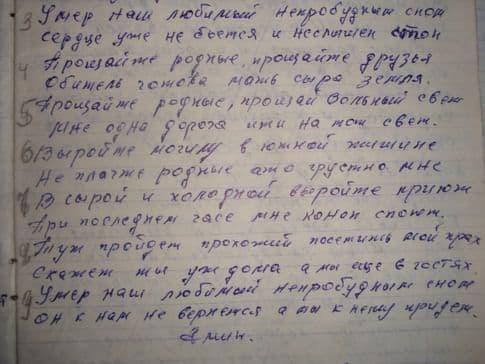 3 Умер наш любимый непробудным сном
сердце уже не бьется и неслышен стон
4 Прощайте родные, прощайте друзья
Обитель готова мать сыра земля.
5 Прощайте родные, прощай вольный свет
Мне одна дорога ити на тот свет.
6 Выройте могилу в южной тишине
Не плачте родные ато грустно мне
7 В сырой и холадной выройте приют
При последнем часе мне конон споют.
8 Тут пройдет прохожий посетить мой прах
Скажет ты уж дома а мы еще в гостях
9 Умер наш любимый непробудным сном
он к нам не вернется а мы к нему придем.